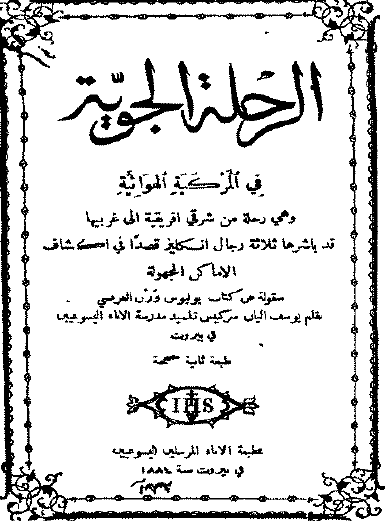 الرحلة الجوية
في المركبة الهوائية
وهي رحلة من شرقي افريقية الى غربيها
قد باشرها ثلاثة رجال انكليز قصدًا في اكتشاف
الاماكن المجهولة
منقولة عن كتاب يوليوس ورن الفرنسي
بقلم يوسف اليان سركيس تلميذ مدرسة الاباء اليسوعيين
في بيروت
طبعة ثانية مصححة
IHS
مطبعة الاباء المرسلين اليسوعيين
في بيروت سنة ١٨٨٤